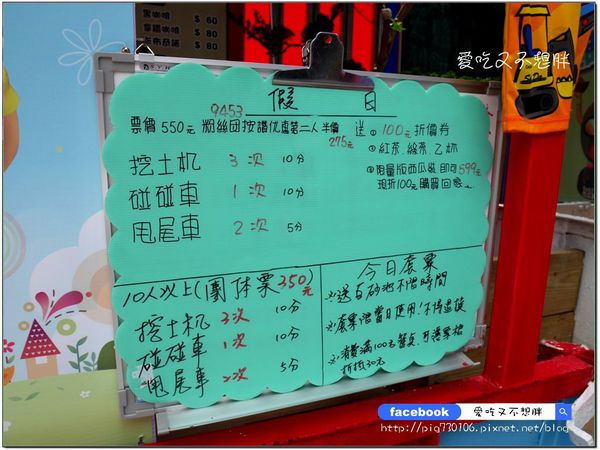 黑咖啡 $60
拿鐵咖啡 $80
$80
愛吃又不想胖
假 日
9453
票價550元 粉絲団按讚优惠第二人半價 送 ①100元折價券
275元
②紅茶.綠茶.乙杯
挖土机 3次 10分
碰碰車 1次 10分
甩尾車 2次 5分
現折100元 購買回
10人以上(團体票350元)
挖土机 3次 10分
碰碰車 1次 10分
甩尾車 2次 5分
今日套票
送白砂池不限時間
套票限當日使用!不得退換
消費滿100元餐点 可憑票根
折抵30元
facebook 愛吃又不想胖
http://pig730106.pixnet.net/blog